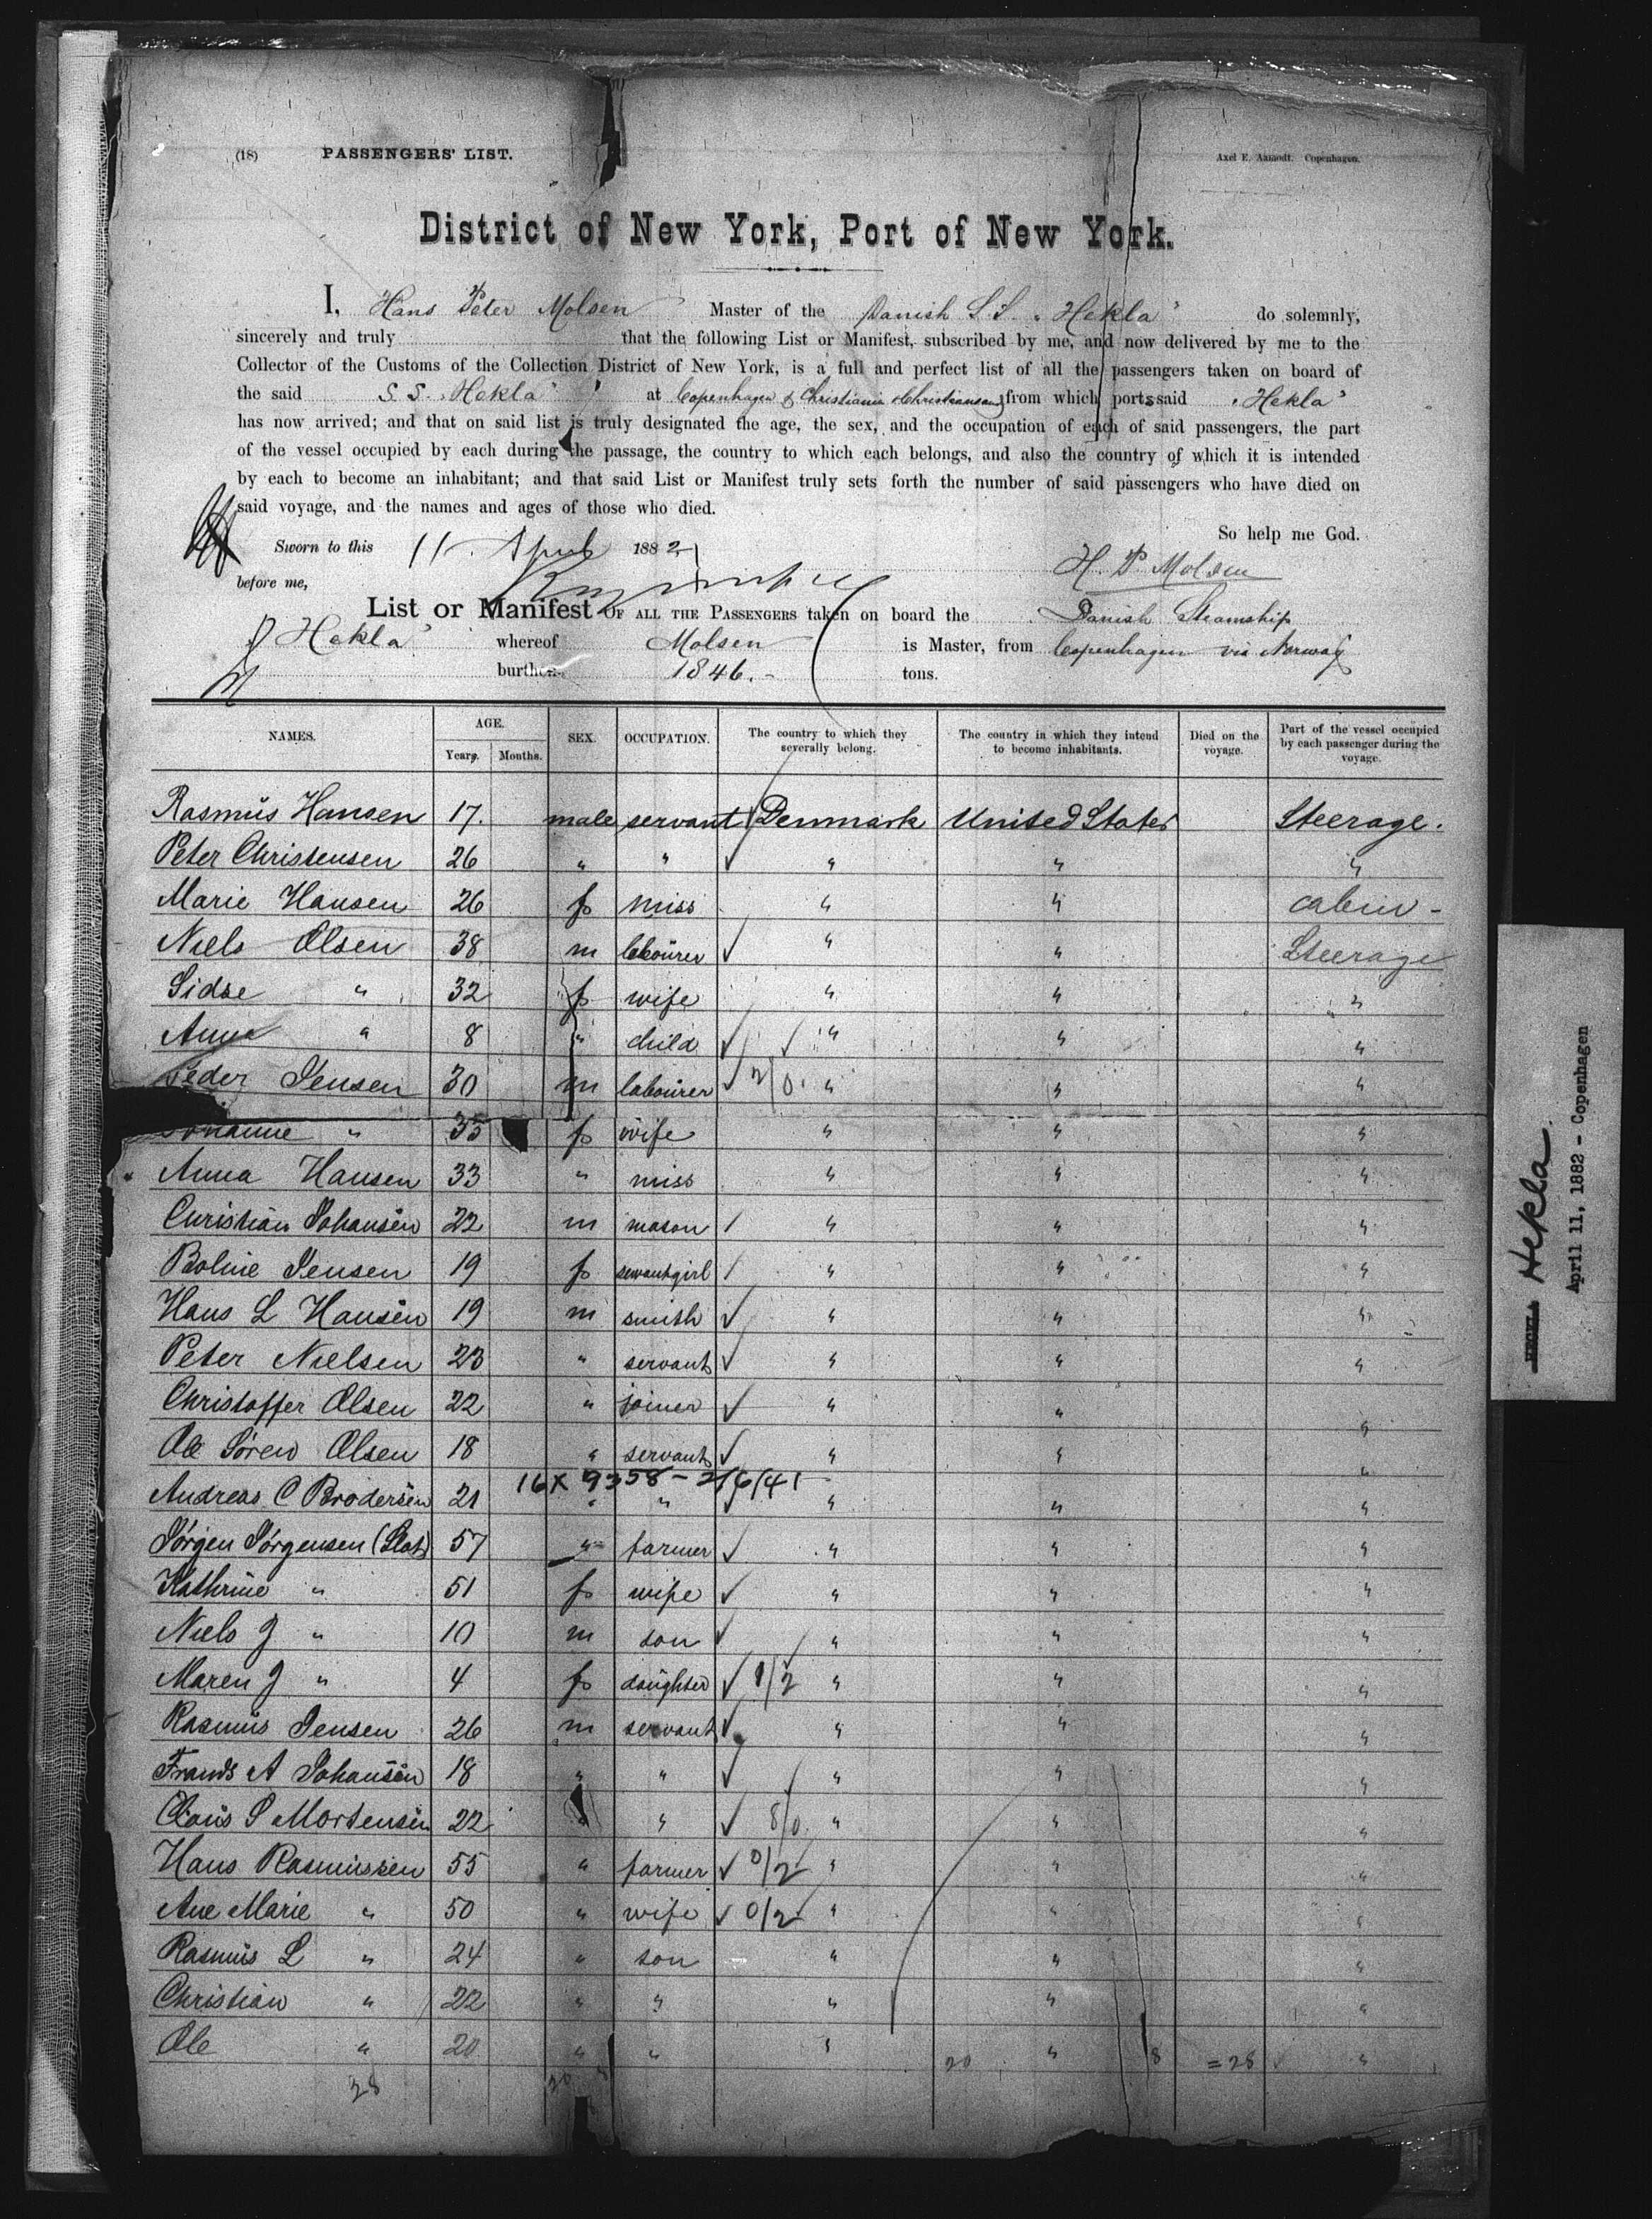 (18) PASSENGERS' LIST. Axel E. Aamodt. Copenhagen.
District of New York, Port of New York.
I, Hans Peter Molsen Master of the Danish S.S. "Hekla" do solemnly,
sincerely and truly that the following List or Manifest, subscribed by me, and now delivered by me to the
Collector of the Customs of the Collection District of New York, is a full and perfect list of all the passengers taken on board of
the said S.S. "Hekla" at Copenhagen & Christiania & Christiansand from which ports said "Hekla"
has now arrived; and that on said list is truly designated the age, the sex, and the occupation of each of said passengers, the part
of the vessel occupied by each during the passage, the country to which each belongs, and also the country of which it is intended
by each to become an inhabitant; and that said List or Manifest truly sets forth the number of said passengers who have died on
said voyage, and the names and ages of those who died.
So help me God.
Sworn to this 11 April 1882
H. P. Molsen
before me,
List or Manifest OF ALL THE PASSENGERS taken on board the Danish Steamship
"Hekla" whereof Molsen is Master, from Copenhagen via Norway
burthen 1846.- tons.
NAMES. AGE. Years. Months. SEX. OCCUPATION. The country to which they severally belong. The country in which they intend to become inhabitants. Died on the voyage. Part of the vessel occupied by each passenger during the voyage.
Rasmus Hansen 17. male servant Denmark United States Steerage.
Peter Christensen 26 " " ✓ " " "
Marie Hansen 26 f miss " " cabin -
Niels Olsen 38 m labourer ✓ " " Steerage
Sidse " 32 f wife " " "
Anna " 8 " child ✓ ✓ " " "
Peder Jensen 30 m labourer ✓ 2/0 " " "
Johanne " 35 f wife " " "
Anna Hansen 33 " miss " " "
Christian Johansen 22 m mason / " " "
Boline Jensen 19 f servantgirl / " " "
Hans L Hansen 19 m smith ✓ " " "
Peter Nielsen 23 " servant ✓ " " "
Christoffer Olsen 22 " joiner ✓ " " "
Ole Sören Olsen 18 " servant ✓ " " "
16 X 9358 - 2/6/41
Andreas C Brodersen 21 " " ✓ " " "
Jörgen Jörgensen (Slot) 57 " farmer ✓ " " "
Kathrine " 51 f wife ✓ " " "
Niels J " 10 m son ✓ " " "
Maren J " 4 f daughter ✓ 1/2 " " "
Rasmus Jensen 26 m servant ✓ " " "
Frands A Johansen 18 " " ✓ " " "
Claus P Mortensen 22 " " ✓ 8/0 " " "
Hans Rasmussen 55 " farmer ✓ 0/2 " " "
Ane Marie " 50 " wife ✓ 0/2 " " "
Rasmus L " 24 " son " " "
Christian " 22 " " " " "
Ole " 20 " " " " "
20 8 = 28
28 20 8
HECLA Hekla
April 11, 1882 - Copenhagen